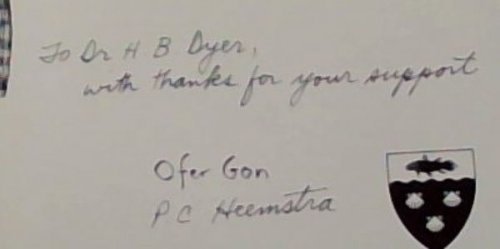 To Dr H B Dyer,
with thanks for your support
Ofer Gon
P C Heemstra